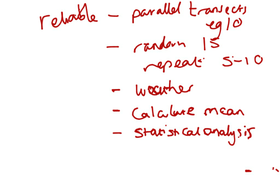 reliable - parallel transects
eg 10
- random 15
repeat: 5-10
- weather
- calculate mean
- statistical analysis